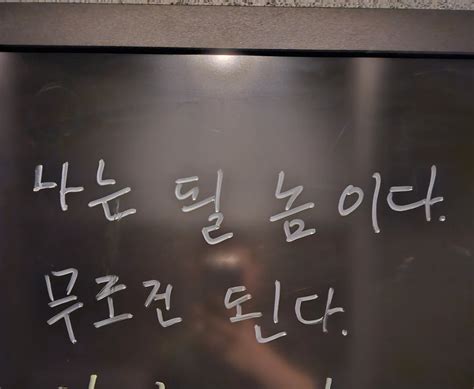 나는 될 놈이다.
무조건 된다.